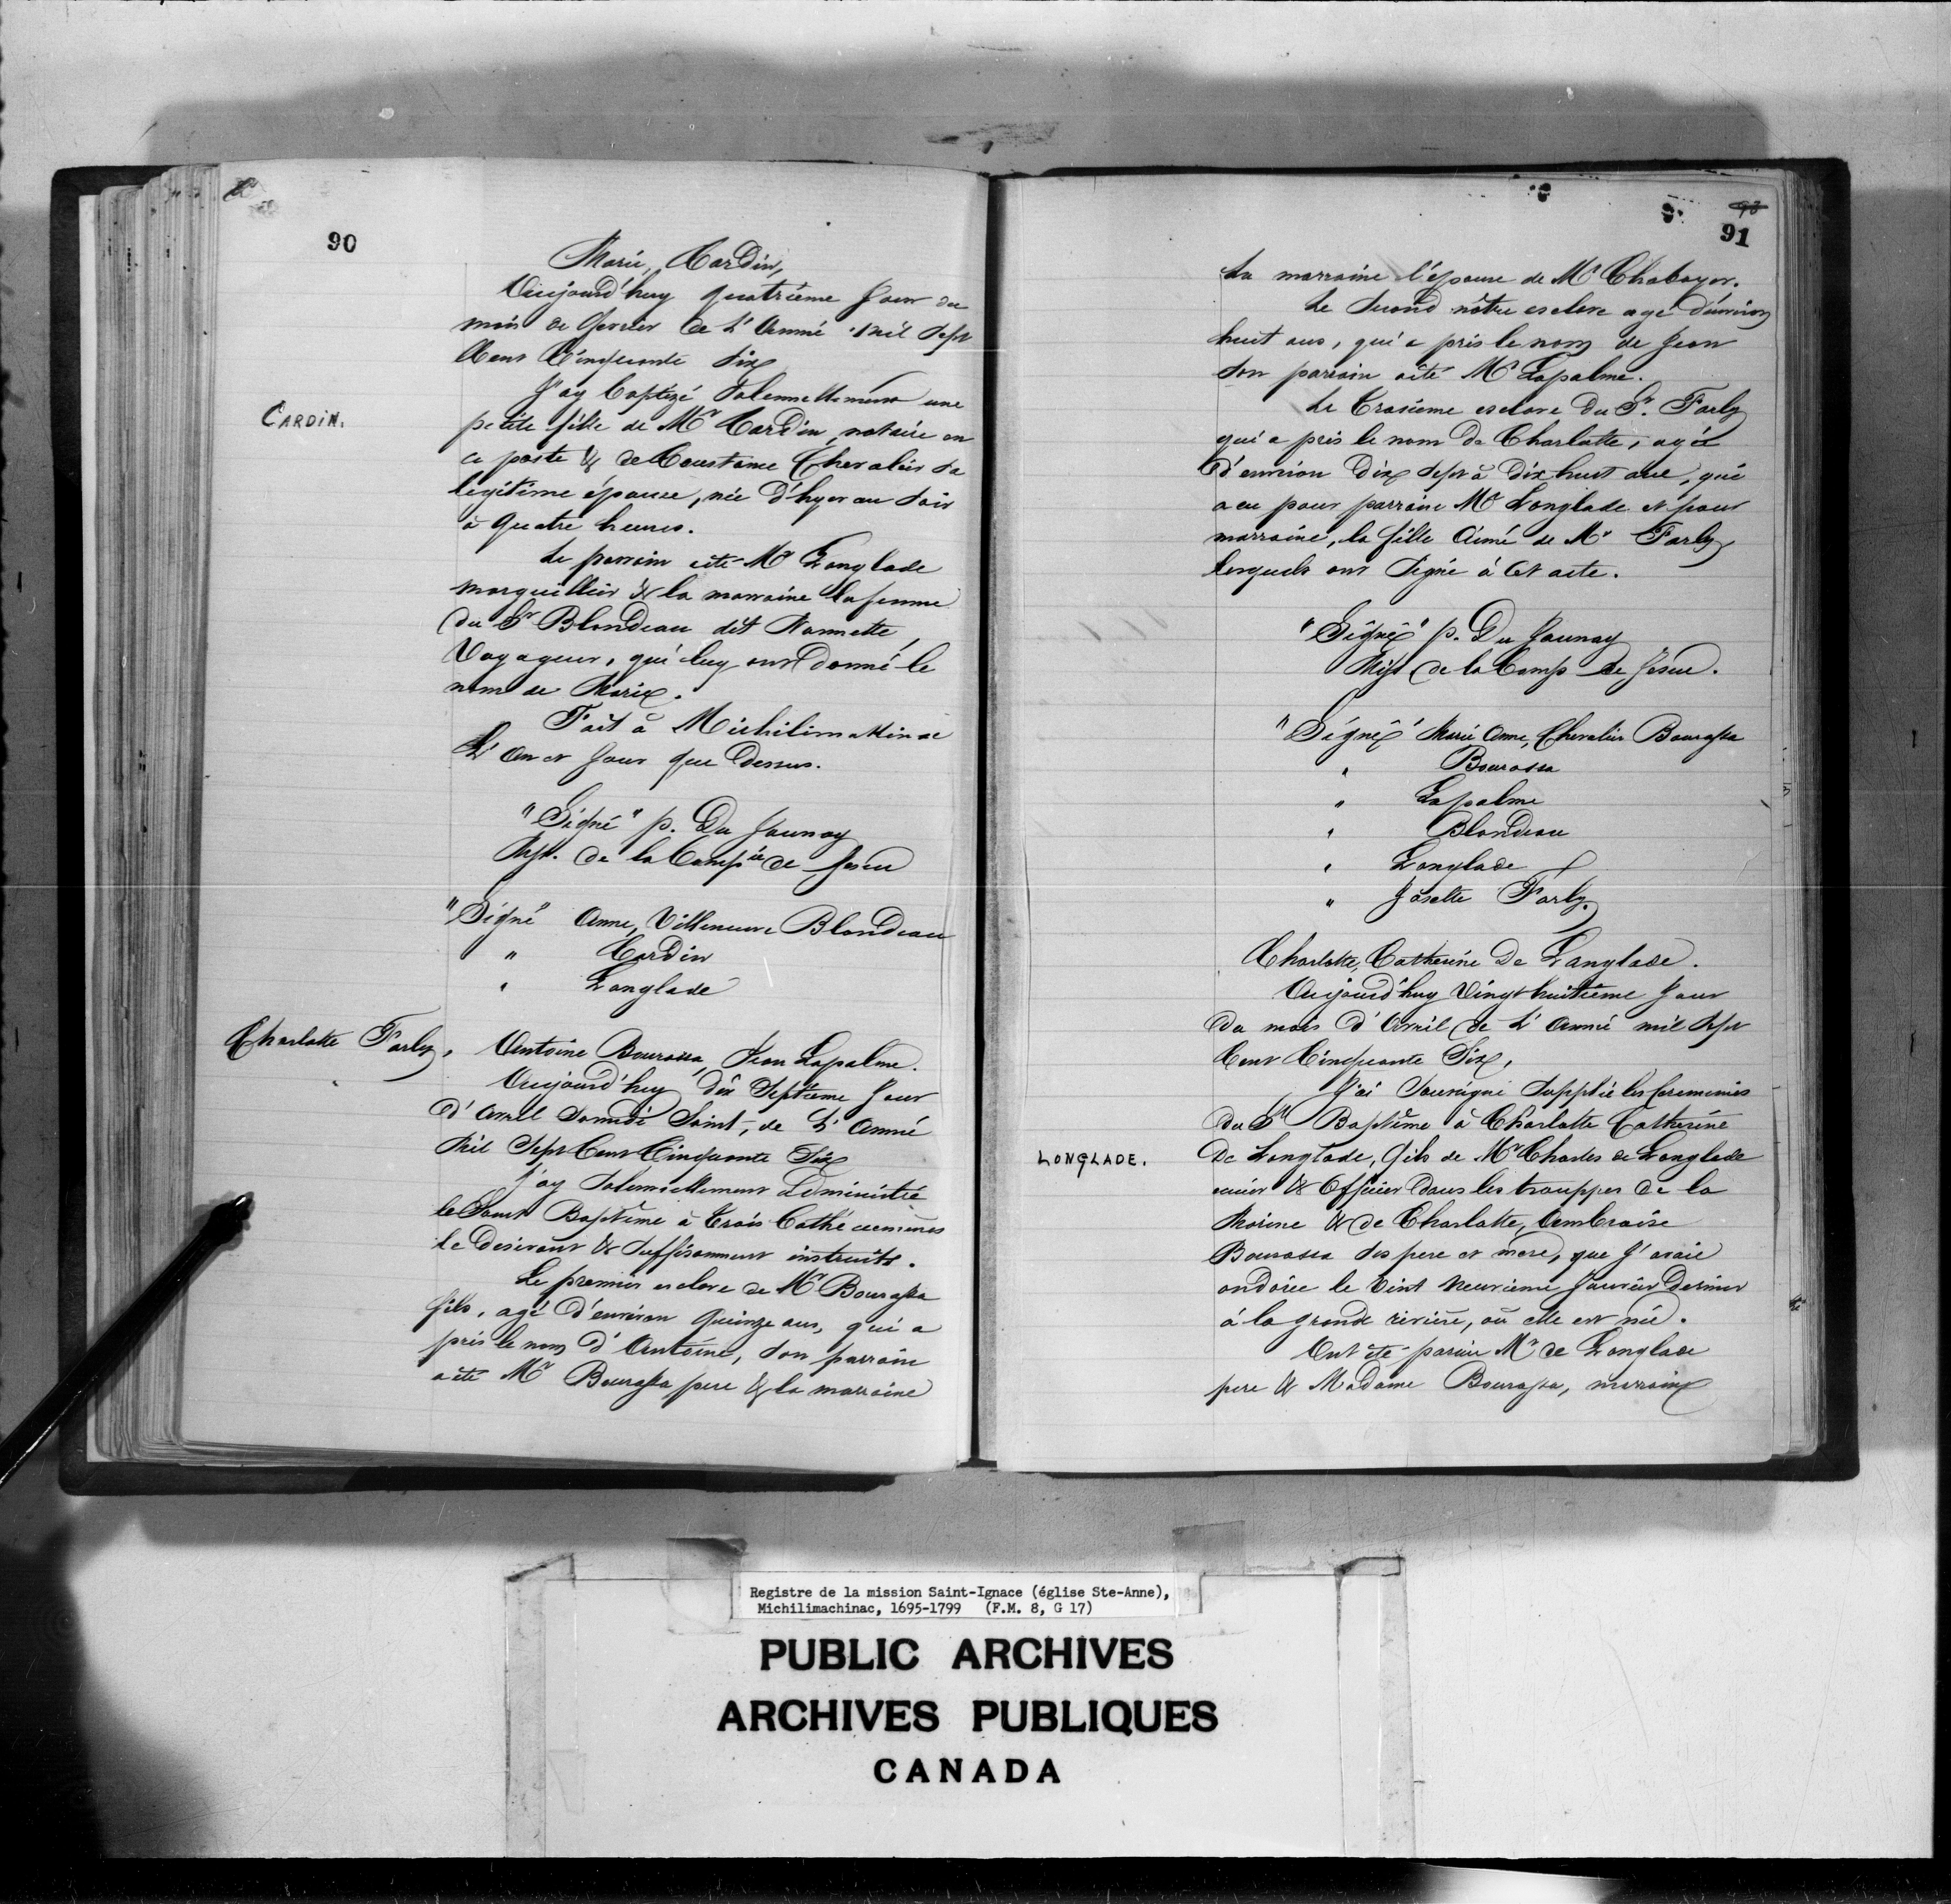 90
Marie, Cardin,
Aujourd'huy quatriême Jour du
mois de fevrier de L'Année mil Sept
Cent Cinquante Six
J'ay baptizé Solennellement une
CARDIN.
petite fille de Mr Cardin, notaire en
ce poste & de Constame Chevalier Sa
légitime épouse, née d'hyer au Soir
à quatre heures.
Le parrain a été Mr Langlade
marguillier & la marraine la femme
du Sr Blondeau dit Nannette,
Voyageur, qui luy ont donné le
nom de Marie.
Fait à Michilimakinac
L'An et Jour que dessus.
"Signé" p. Du Jaunay
Miss. de la Compie de Jesus
"Signé" Anne, Villeneuve Blondeau
" Cardin
" Langlade
Charlotte Farly, Antoine Bourassa, Jean Lapalme.
Aujourd'huy dix Septieme Jour
d'Avril Samedi Saint, de L'Année
Mil Sept Cent Cinquante Six
J'ay Solemnellement administré
le Saint Baptême à trois Cathécumenes
le desirant & Suffisamment instruits.
Le premier esclave de Mr Bourassa
fils, agé d'environ quinze ans, qui a
pris le nom d'Antoine, Son parrain
a été Mr Bourassa pere & la marraine
93
91
La marraine l'épouse de Mr Chaboyer.
Le Second nôtre esclave agé d'environ
huit ans, qui a pris le nom de Jean
Son parrain a été Mr Lapalme.
Le troisieme esclave du Sr. Farly
qui a pris le nom de Charlotte, agée
d'environ dix Sept à dix huit ans, qui
a eu pour parrain Mr Langlade et pour
marraine, la fille Aimé de Mr Farly,
lesquels ont Signé à Cet acte.
"Signé" p. Du Jaunay
Miss de la Comp de Jesus.
"Signé" Marie Anne, Chevalier Bourassa
" Bourassa
" Lapalme
" Blondeau
" Langlade
" Josette Farly.
Charlotte, Catherine De Langlade.
Aujourd'huy Vingt huitième Jour
du mois d'Avril de L'Année mil Sept
Cent Cinquante Six,
J'ai Soussigné Supplié les Ceremonies
du St Baptême à Charlotte Catherine
LONGLADE.
De Langlade, fils de Mr Charles de Langlade
& Officier dans les trouppes de la
Marine & de Charlotte, Ambroise
Bourassa Ses pere et mere, que J'avais
ondoiée le Vint neuvieme Janvier Dernier
à la grande rivière, où elle est née.
Ont été parain Mr de Langlade
pere & Madame Bourassa, marraine
Registre de la mission Saint-Ignace (église Ste-Anne),
Michilimachinac, 1695-1799 (F.M. 8, G 17)
PUBLIC ARCHIVES
ARCHIVES PUBLIQUES
CANADA